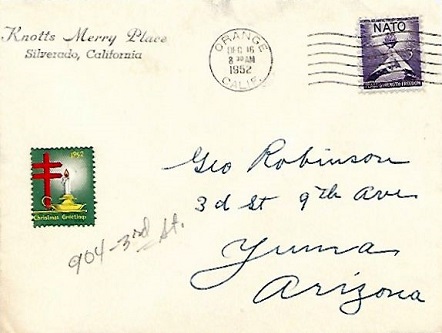 Knotts Merry Place
Silverado, California
ORANGE
DEC 16
8 30 AM
1952
CALIF.
NATO
3¢
PEACE STRENGTH FREEDOM
1952
Christmas Greetings
Geo Robinson
3d St 9th Ave
Yuma
Arizona
904-3rd St.